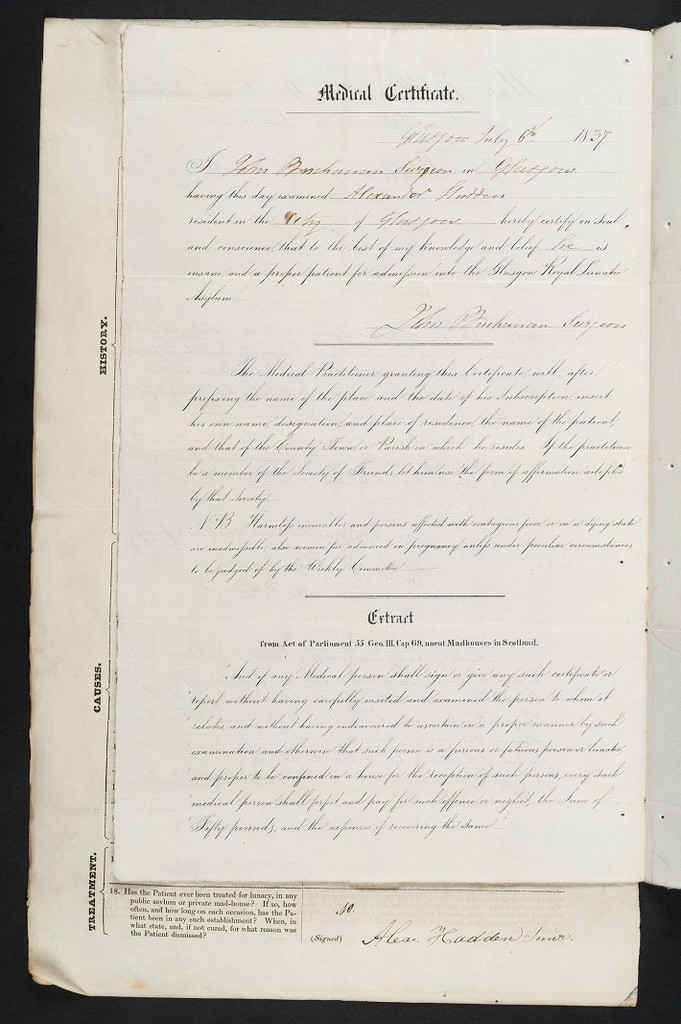 Medical Certificate.
Glasgow July 6th 1837
I John Buchanan Surgeon in Glasgow
having this day examined Alexander Hadden
resident in the City of Glasgow hereby certify on Soul
and conscience, that to the best of my knowledge and belief he is
insane and a proper patient for admission into the Glasgow Royal Lunatic
Asylum
John Buchanan Surgeon
The Medical Practitioner granting this Certificate, will, after
prefixing the name of the place and the date of his Subscription, insert
his own name, designation, and place of residence, the name of the patient,
and that of the County, Town, or Parish in which he resides. If the practitioner
be a member of the Society of Friends, let him use the form of affirmation adopted
by that Society.
N.B. Harmless incurables and persons affected with contagious fever or in a dying state
are inadmissible, also women far advanced in pregnancy, unless under peculiar circumstances,
to be judged of by the Weekly Committee
Extract
from Act of Parliament 55 Geo. III. Cap 69, anent Madhouses in Scotland.
"And if any Medical person shall sign or give any such certificate or
"report without having carefully visited and examined the person to whom it
"relates, and without having endeavoured to ascertain in a proper manner by such
"examination and otherwise that such person is a furious or fatuous person or lunatic
"and proper to be confined in a house for the reception of such persons, every such
"medical person shall forfeit and pay for such offence or neglect, the Sum of
"Fifty pounds, and the expenses of recovering the same"
HISTORY.
CAUSES.
TREATMENT.
18. Has the Patient ever been treated for lunacy, in any
public asylum or private mad-house? If so, how
often, and how long on each occasion, has the Pa-
tient been in any such establishment? When, in
what state, and, if not cured, for what reason was
the Patient dismissed?
No.
(Signed) Alexr Hadden Junr.